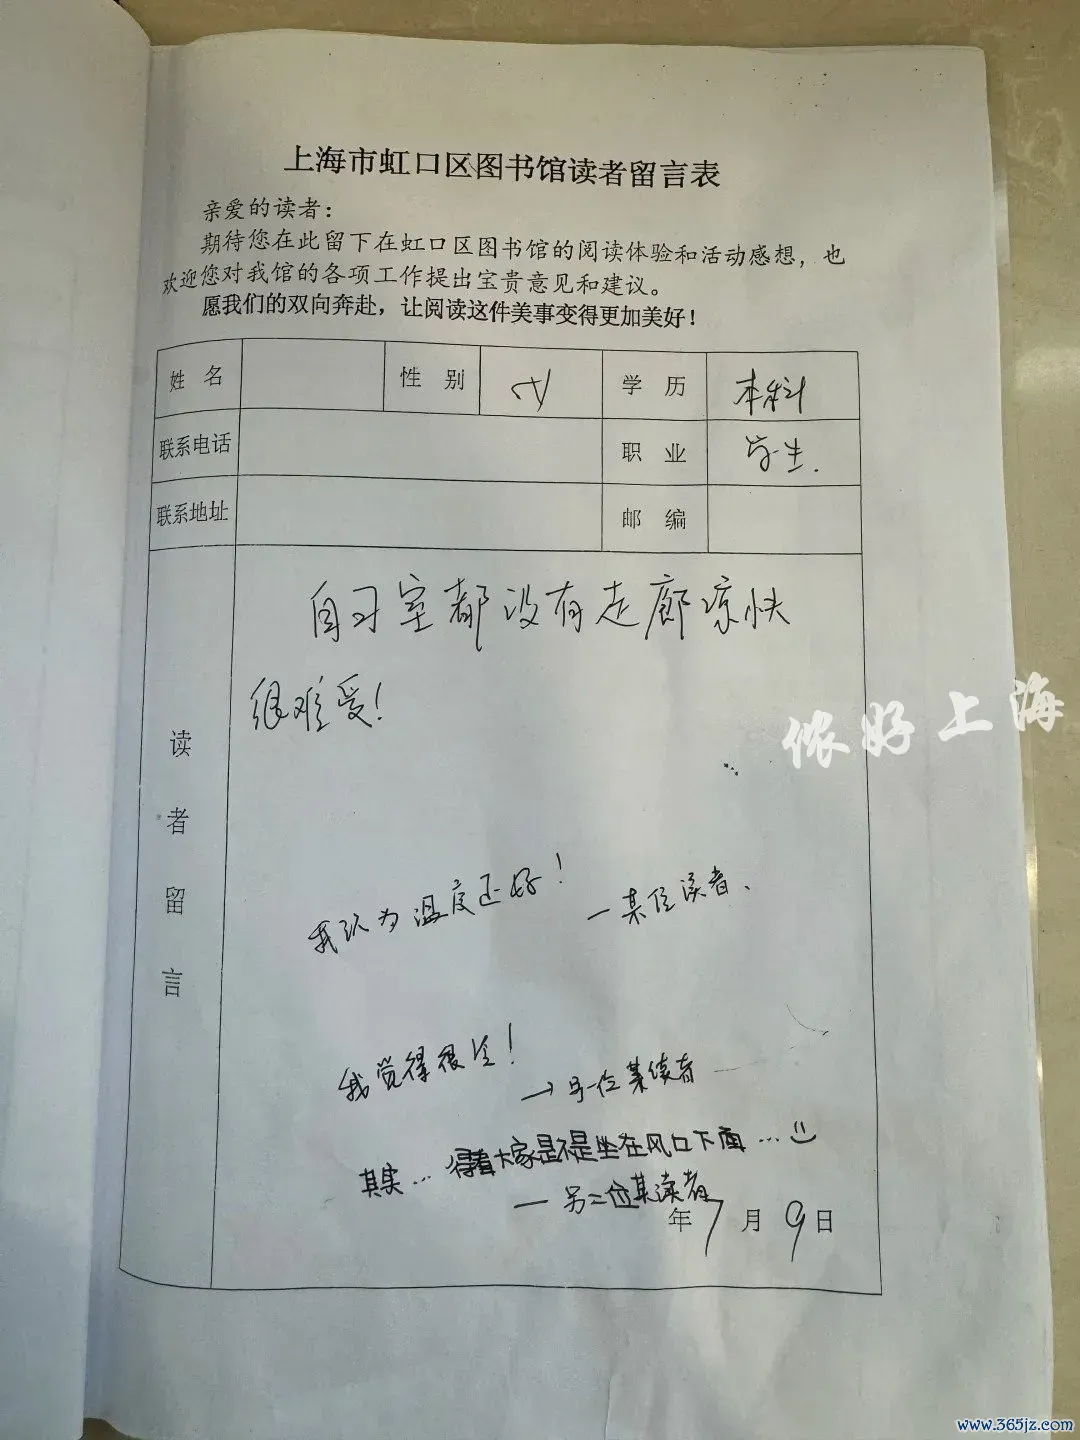 上海市虹口区图书馆读者留言表
亲爱的读者：
期待您在此留下在虹口区图书馆的阅读体验和活动感想，也
欢迎您对我馆的各项工作提出宝贵意见和建议。
愿我们的双向奔赴，让阅读这件美事变得更加美好！
姓 名 性 别 女 学 历 本科
联系电话 职 业 学生.
联系地址 邮 编
读者留言
自习室都没有走廊凉快
很难受！
侬好上海
我认为温度还好！
—某位读者、
我觉得很冷！
→另一位某读者
其实… 得看大家是不是坐在风口下面…
—另二位某读者
年7月9日
www.365jz.com